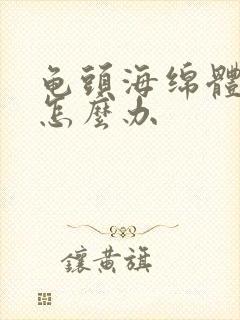 龟頭海绵體
怎麼办
鑲黄旗